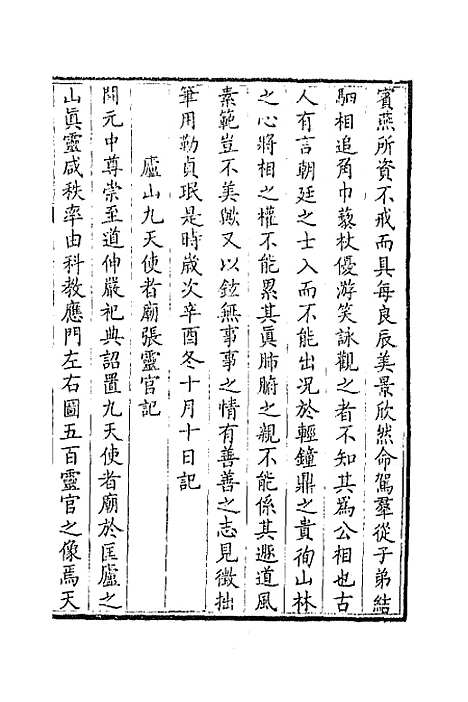 賓燕所資不戒而具每良辰美景欣然命駕羣從子弟結
駟相追角巾藜杖優游笑詠觀之者不知其爲公相也古
人有言朝廷之士入而不能出況於輕鐘鼎之貴徇山林
之心將相之權不能累其眞肺腑之親不能係其遯道風
素範豈不美歟又以鉉無事事之情有善善之志見徵拙
筆用勒貞珉是時歲次辛酉冬十月十日記
廬山九天使者廟張靈官記
開元中尊崇至道伸嚴祀典詔置九天使者廟於匡廬之
山眞靈咸秩率由科教應門左右圖五百靈官之像焉天